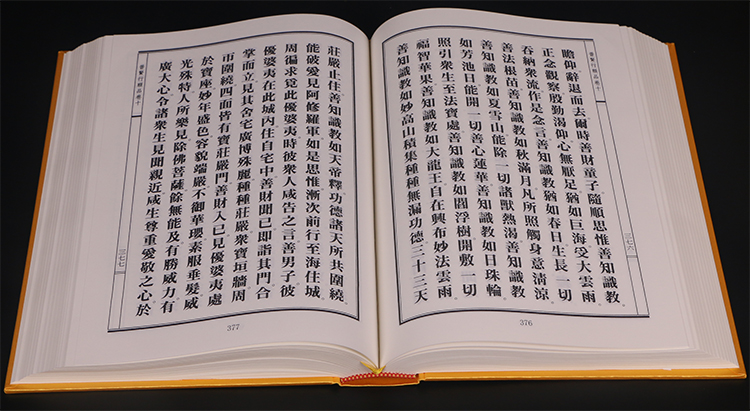 瞻仰辭退而去爾時善財童子隨順思惟善知識教
正念觀察殷勤渴仰心無厭足猶如巨海受大雲雨
吞納衆流作是念言善知識教猶如春日生長一切
善法根苗善知識教如秋滿月凡所照觸身意清涼
善知識教如夏雪山能除一切諸獸熱渴善知識教
如芳池日能開一切善心蓮華善知識教如日珠輪
照引衆生至法寶處善知識教如閻浮樹開敷一切
福智華果善知識教如大龍王自在興布妙法雲雨
善知識教如妙高山積集種種無漏功德三十三天
三七六
376
莊嚴止住善知識教如天帝釋功德諸天所共圍繞
能破愛見阿修羅軍如是思惟漸次前行至海住城
周徧求覓此優婆夷時彼衆人咸告之言善男子彼
優婆夷在此城內住自宅中善財聞已即詣其門合
掌而立見其舍宅廣博殊麗種種莊嚴衆寶垣牆周
帀圍繞四面皆有寶莊嚴門善財入已見優婆夷處
於寶座妙年盛色容貌端嚴不御華瓔素服垂髮威
光殊特人所樂見除佛菩薩餘無能及有勝威力有
廣大心令諸衆生見聞親近咸生尊重愛敬之心於
三七七
377